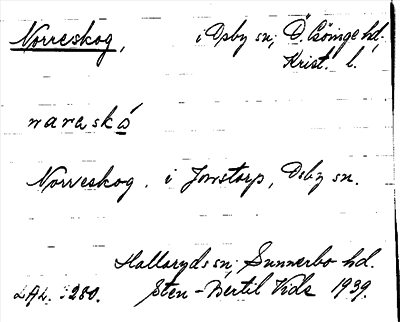 Norreskog, i Osby sn, Ö. Göinge hd,
Krist. l.
naraskó
Norreskog. i Jonstorp, Osby sn.
Hallaryds sn, Sunnerbo hd.
LAL. 5280. Sten-Bertil Vide 1939.